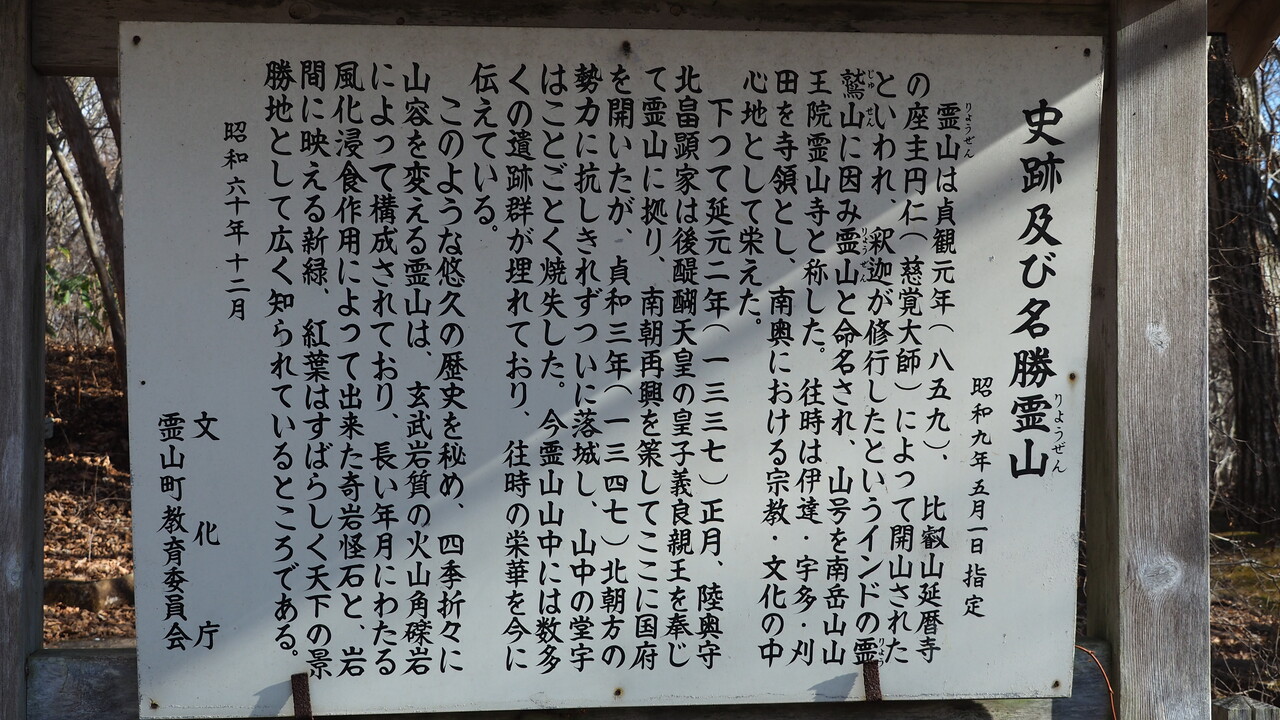 史跡及び名勝霊山
りようぜん
昭和九年五月一日指定
霊山は貞観元年(八五九)、比叡山延暦寺
りょうぜん
の座主円仁(慈覚大師)によって開山された
といわれ、釈迦が修行したというインドの霊
りょう
鷲山に因み霊山と命名され、山号を南岳山山
じゅせん
りょうぜん
王院霊山寺と称した。往時は伊達・宇多・刈
田を寺領とし、南奥における宗教・文化の中
心地として栄えた。
下つて延元二年(一三三七)正月、陸奥守
北畠顕家は後醍醐天皇の皇子義良親王を奉じ
て霊山に拠り、南朝再興を策してここに国府
を開いたが、貞和三年(一三四七)北朝方の
勢力に抗しきれずついに落城し、山中の堂宇
はことごとく焼失した。今霊山山中には数多
くの遺跡群が埋れており、往時の栄華を今に
伝えている。
このような悠久の歴史を秘め、四季折々に
山容を変える霊山は、玄武岩質の火山角礫岩
によって構成されており、長い年月にわたる
風化浸食作用によって出来た奇岩怪石と、岩
間に映える新緑、紅葉はすばらしく天下の景
勝地として広く知られているところである。
昭和六十年十二月
文化庁
霊山町教育委員会